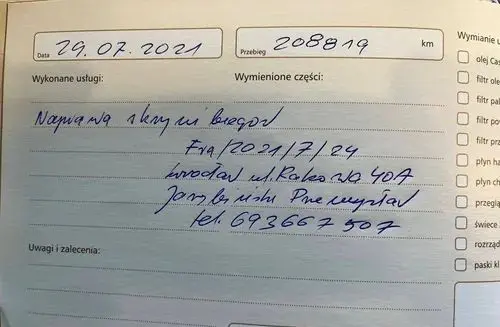 Data 29.07.2021 Przebieg 208819 km
Wymianie u
Wykonane usługi: Wymienione części:
olej Cas
filtr ole
filtr pal
filtr po
filtr prz
płyn ha
płyn ch
przeglą
świece
rozrząd
paski kl
Naprawa skrzyni biegów
Fra/2021/7/24
Wrocław ul. Rakowa 40A
Przemysław
tel. 693667507
Uwagi i zalecenia: